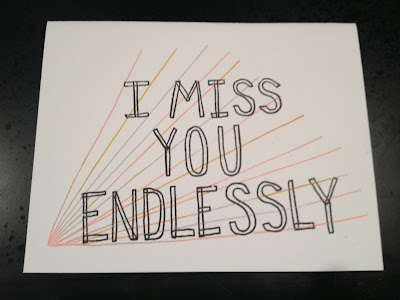 I MISS
YOU
ENDLESSLY